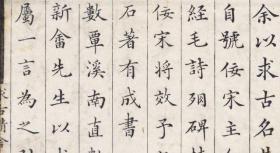 余以求古名
自號佞宋主
佞宋將效予
經毛詩殘碑
石著有成書
數覃溪南直
新畬先生以
屬一言為之